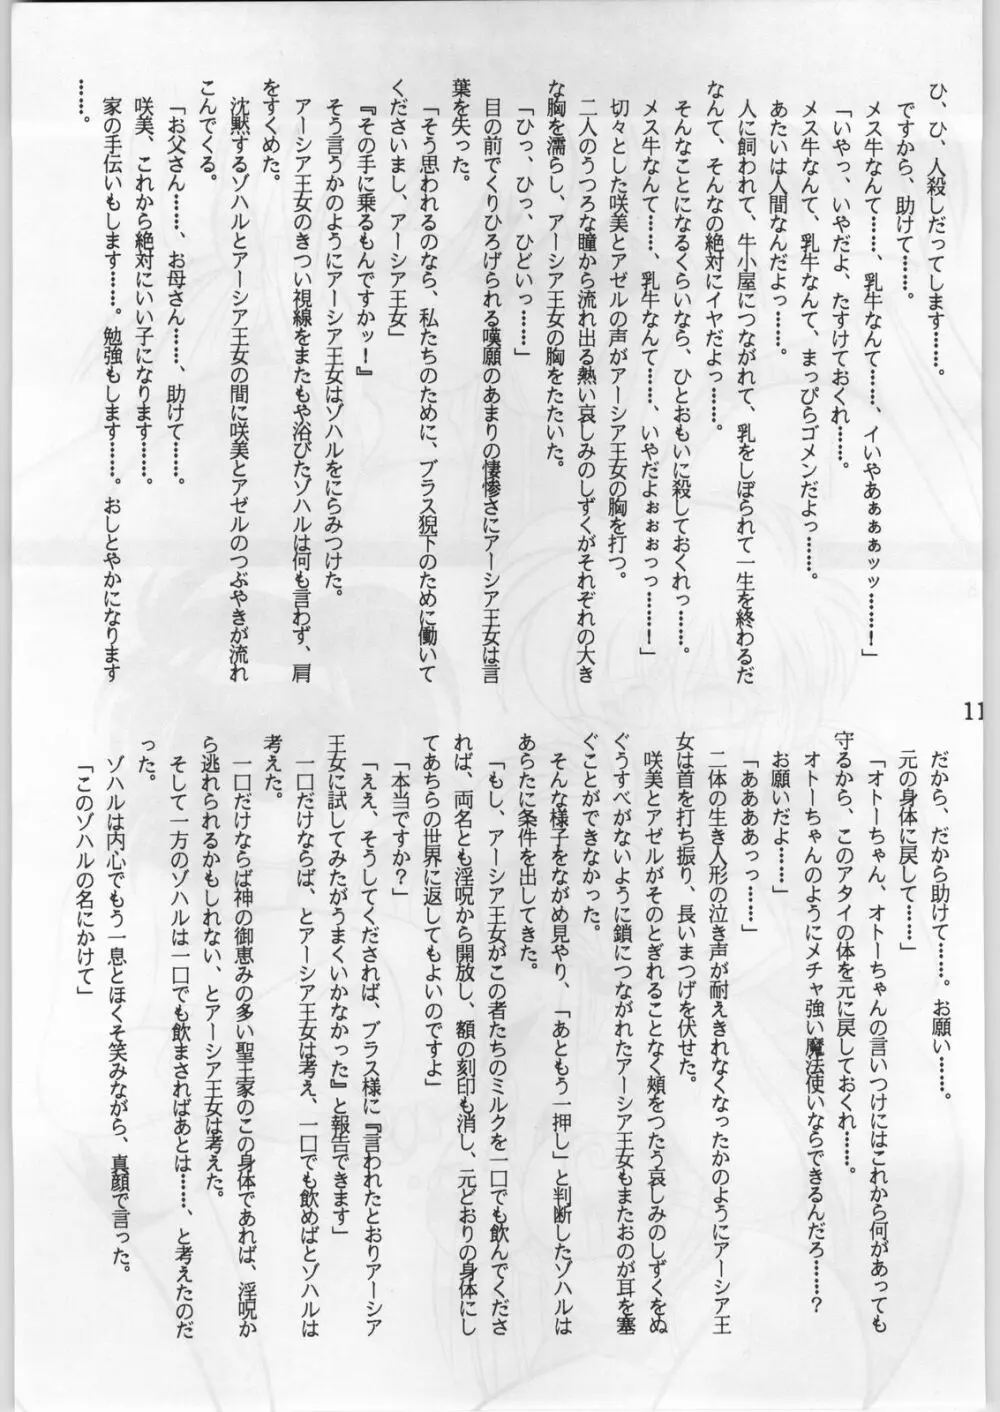 ひ、ひ、人殺しだってします……。
ですから、助けて……。
メス牛なんて……、乳牛なんて……、イいやあぁぁぁッッ……！」
「いやっ、いやだよ、たすけておくれ……。
メス牛なんて、乳牛なんて、まっぴらゴメンだよっ……。
あたいは人間なんだよっ……。
人に飼われて、牛小屋につながれて、乳をしぼられて一生を終わるだ
なんて、そんなの絶対にイヤだよっ……。
そんなことになるくらいなら、ひとおもいに殺しておくれっ……。
メス牛なんて……、乳牛なんて……、いやだよぉぉぉっっ……！」
切々とした咲美とアゼルの声がアーシア王女の胸を打つ。
二人のうつろな瞳から流れ出る熱い哀しみのしずくがそれぞれの大き
な胸を濡らし、アーシア王女の胸をたたいた。
「ひっ、ひっ、ひどいっ……」
目の前でくりひろげられる嘆願のあまりの悽惨さにアーシア王女は言
葉を失った。
「そう思われるのなら、私たちのために、ブラス猊下のために働いて
くださいまし、アーシア王女」
『その手に乗るもんですかッ！』
そう言うかのようにアーシア王女はゾハルをにらみつけた。
アーシア王女のきつい視線をまたもや浴びたゾハルは何も言わず、肩
をすくめた。
沈黙するゾハルとアーシア王女の間に咲美とアゼルのつぶやきが流れ
こんでくる。
「お父さん……、お母さん……、助けて……。
咲美、これから絶対にいい子になります……。
家の手伝いもします……。勉強もします……。おしとやかになります
……。
11
だから、だから助けて……。お願い……。
元の身体に戻して……」
「オトーちゃん、オトーちゃんの言いつけにはこれから何があっても
守るから、このアタイの体を元に戻しておくれ……。
オトーちゃんのようにメチャ強い魔法使いならできるんだろ……？
お願いだよ……」
「ああああっっ……」
二体の生き人形の泣き声が耐えきれなくなったかのようにアーシア王
女は首を打ち振り、長いまつげを伏せた。
咲美とアゼルがそのとぎれることなく頰をつたう哀しみのしずくをぬ
ぐうすべがないように鎖につながれたアーシア王女もまたおのが耳を塞
ぐことができなかった。
そんな様子をながめ見やり、「あともう一押し」と判断したゾハルは
あらたに条件を出してきた。
「もし、アーシア王女がこの者たちのミルクを一口でも飲んでくださ
れば、両名とも淫呪から開放し、額の刻印も消し、元どおりの身体にし
てあちらの世界に返してもよいのですよ」
「本当ですか？」
「ええ、そうしてくだされば、ブラス様に『言われたとおりアーシア
王女に試してみたがうまくいかなかった』と報告できます」
一口だけならば、とアーシア王女は考え、一口でも飲めばとゾハルは
考えた。
一口だけならば神の御恵みの多い聖王家のこの身体であれば、淫呪か
ら逃れられるかもしれない、とアーシア王女は考えた。
そして一方のゾハルは一口でも飲まされればあとは……、と考えたのだ
った。
ゾハルは内心でもう一息とほくそ笑みながら、真顔で言った。
「このゾハルの名にかけて」